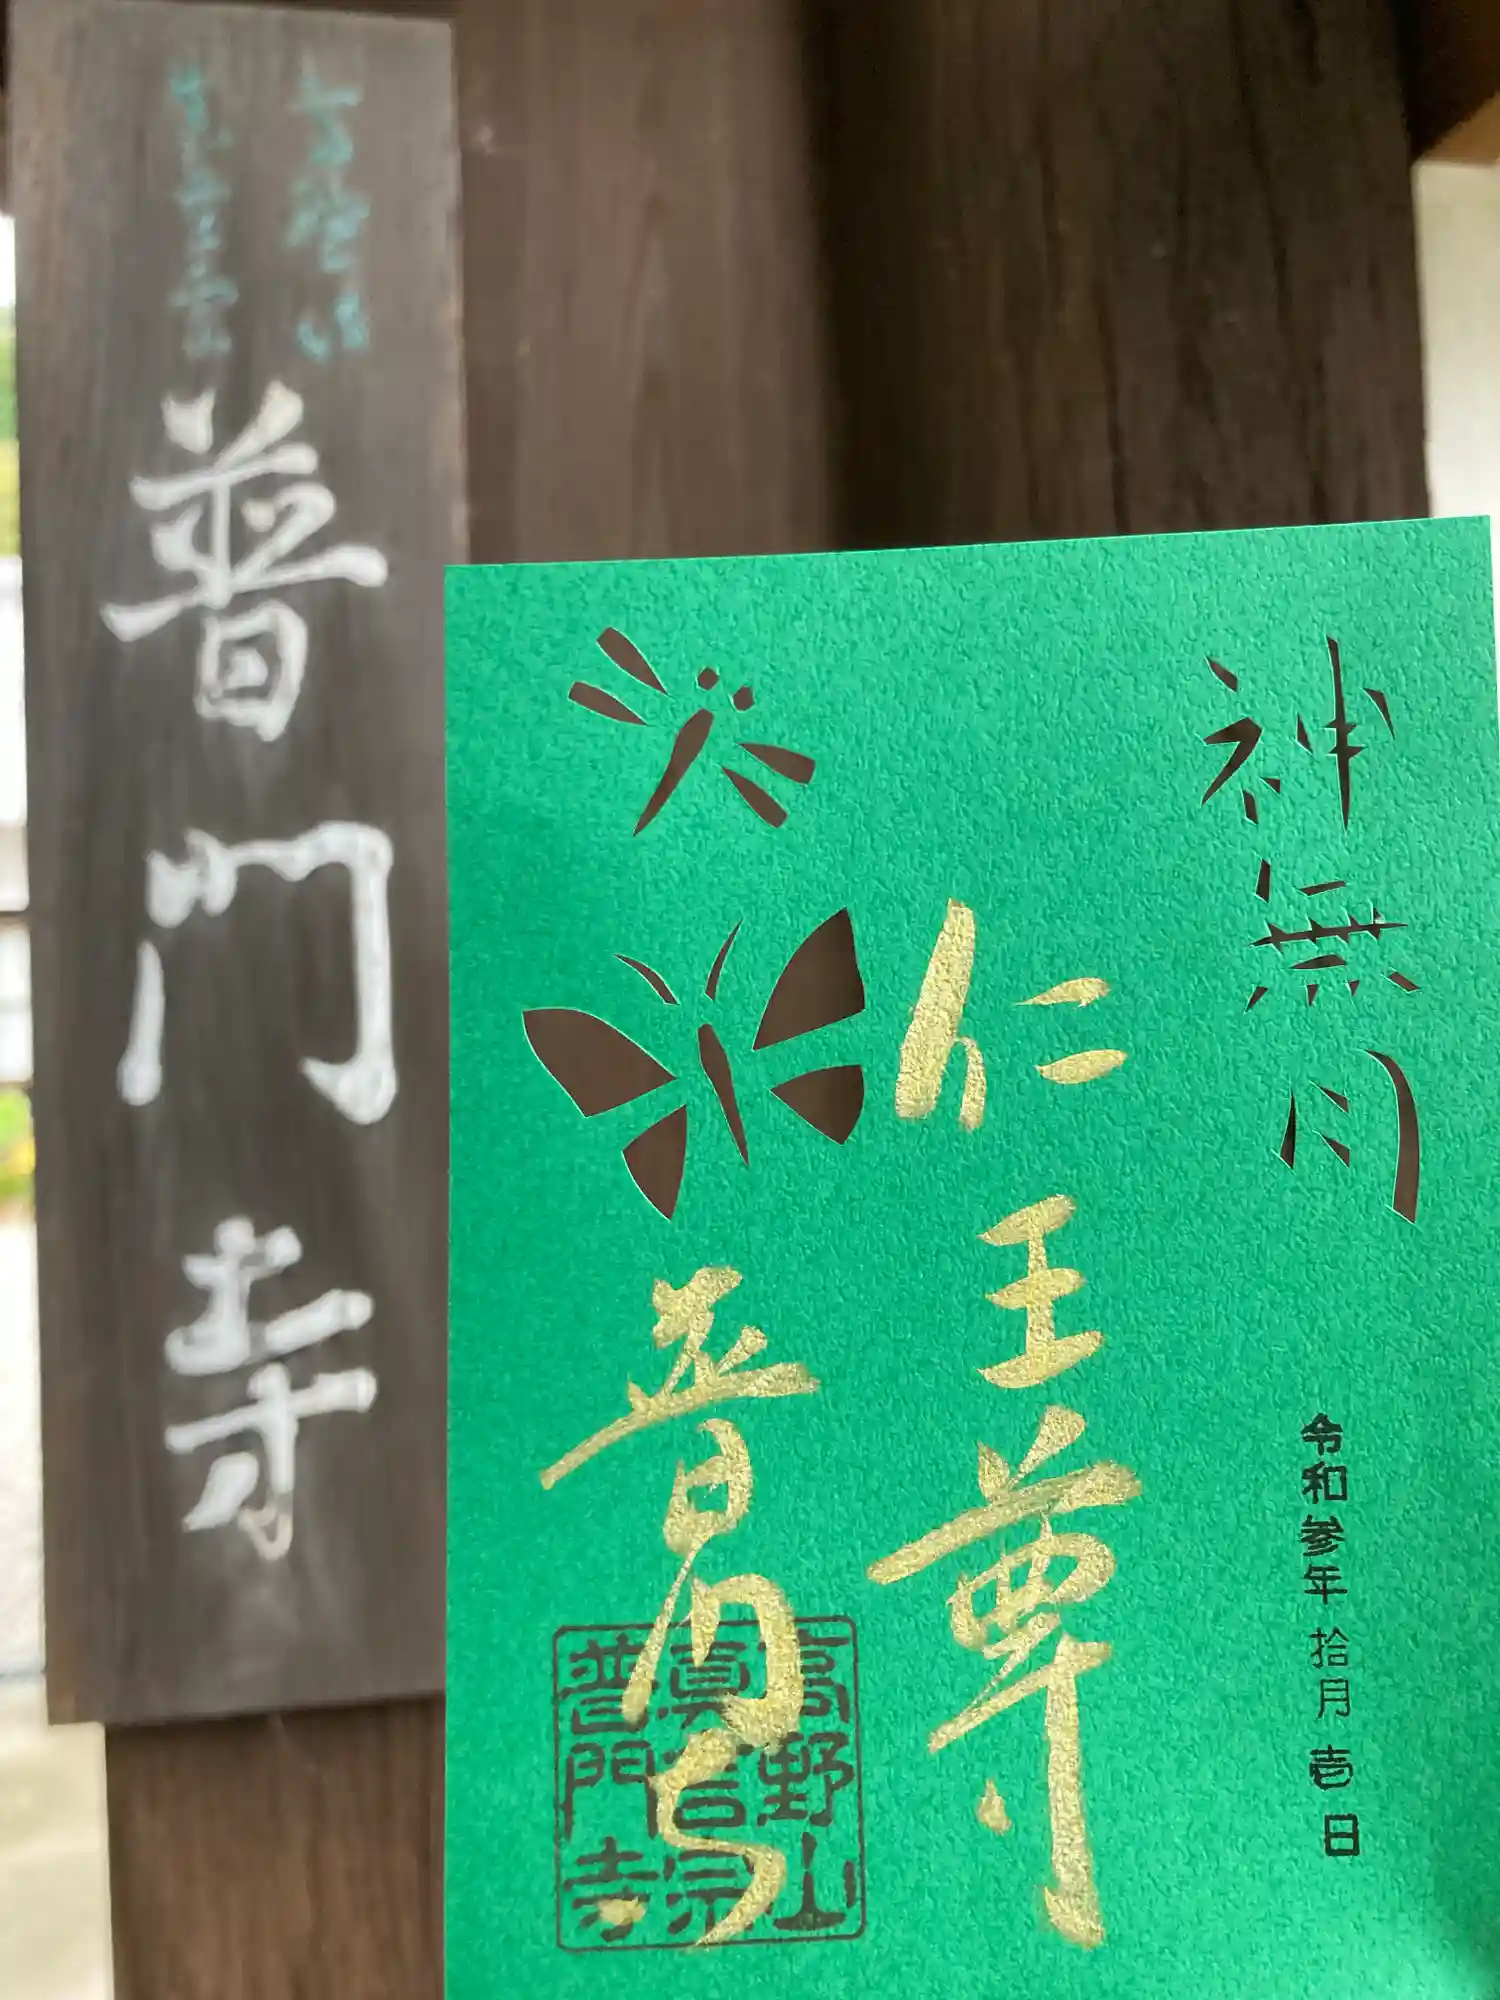 普門寺
神無月
令和参年拾月壱日
仁王尊
普門寺
高野山
真言宗
普門寺